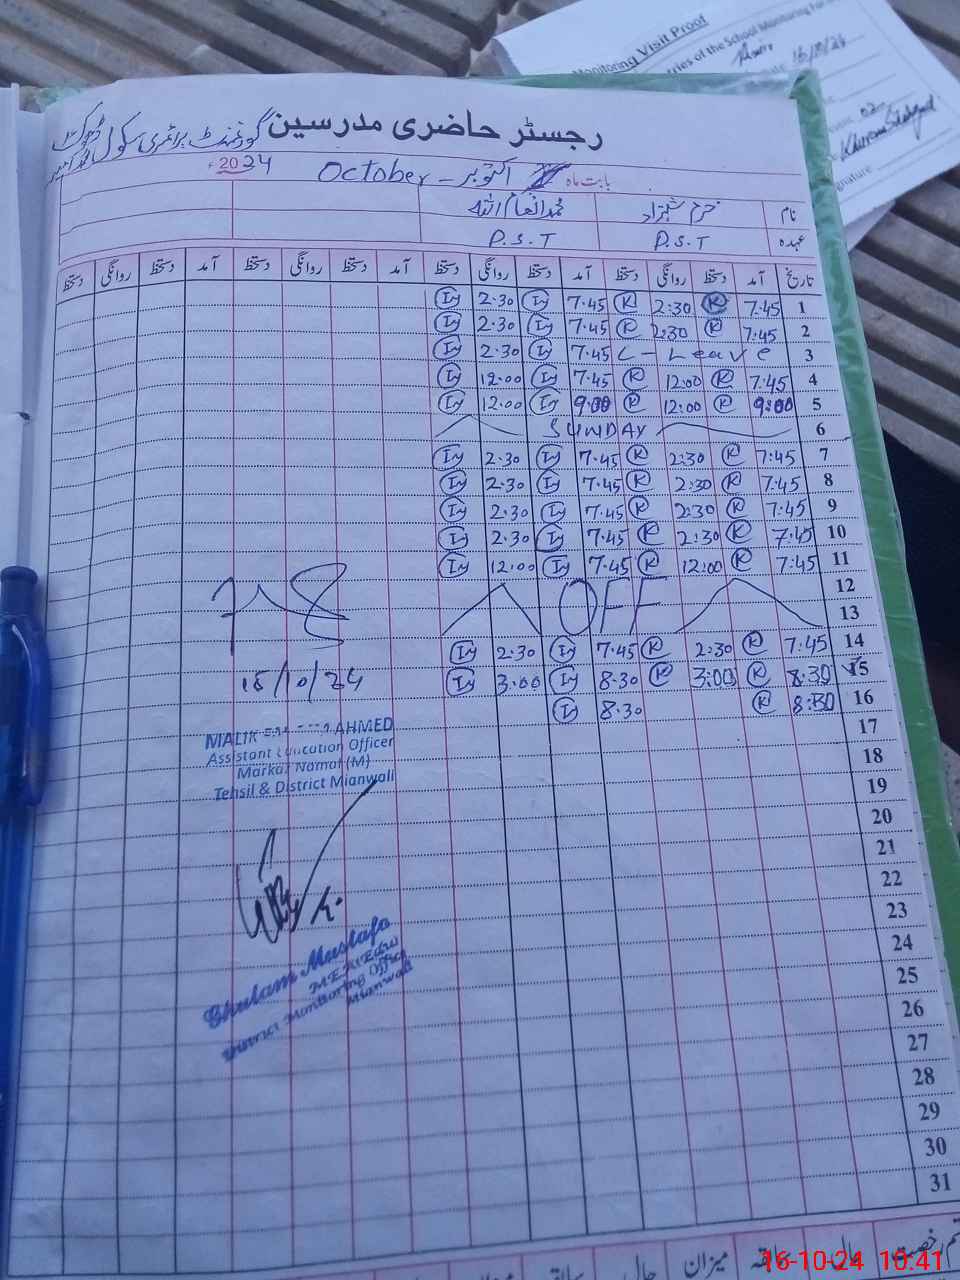 Monitoring Visit Proof
ries of the School Monitoring for
16/10/24
Khurram Shahzad
gnature
رجسٹر حاضری مدرسین گورنمنٹ پرائمری سکول
بابت ماہ اکتوبر - October 2024
نام خرم شہزاد محمد انعام اللہ
عہدہ P.S.T P.S.T
تاریخ آمد دستخط روانگی دستخط آمد دستخط روانگی دستخط آمد دستخط روانگی دستخط آمد دستخط روانگی دستخط
1 7:45 K 2:30 K 7.45 In 2.30 In
2 7:45 K 2:30 K 7.45 In 2.30 In
3 L - Leave 7.45 In 2.30 In
4 7:45 K 12:00 K 7.45 In 12.00 In
5 9:00 K 12:00 K 9.00 In 12.00 In
6 SUNDAY
7 7:45 K 2:30 K 7.45 In 2.30 In
8 7:45 K 2:30 K 7.45 In 2.30 In
9 7:45 K 2:30 K 7.45 In 2.30 In
10 7:45 K 2:30 K 7.45 In 2.30 In
11 7:45 K 12:00 K 7.45 In 12.00 In
12
OFF
13
14 7:45 K 2:30 K 7.45 In 2.30 In
15 8:30 K 3:00 K 8.30 In 3.00 In
16 8:30 K 8.30 In
17
18
19
20
21
22
23
24
25
26
27
28
29
30
31
15/10/24
MALIK AHMED
Assistant Education Officer
Markaz Namal (M)
Tehsil & District Mianwali
Ghulam Mustafa
M.E.A Edu
District Monitoring Officer
Mianwali
رخصت حال سابقہ میزان حال سابقہ
16-10-24 10:41